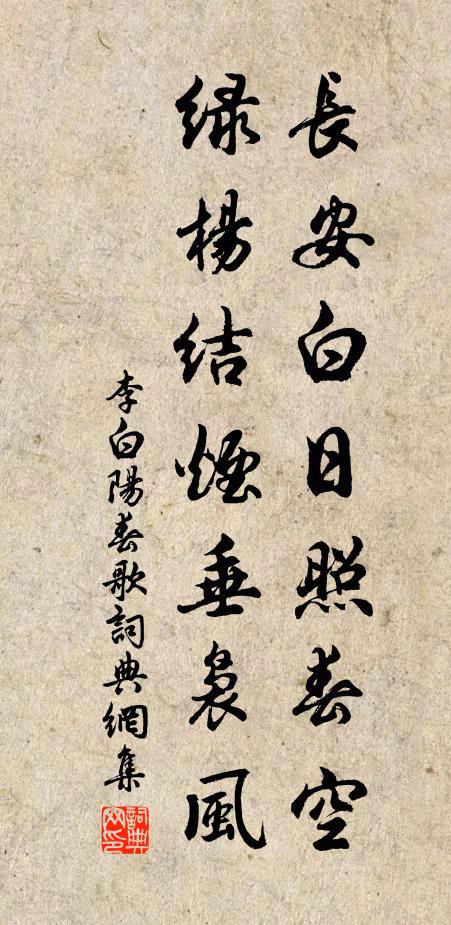 長安白日照春空
綠楊結煙垂裊風
李白陽春歌詞典網集
詞典網印